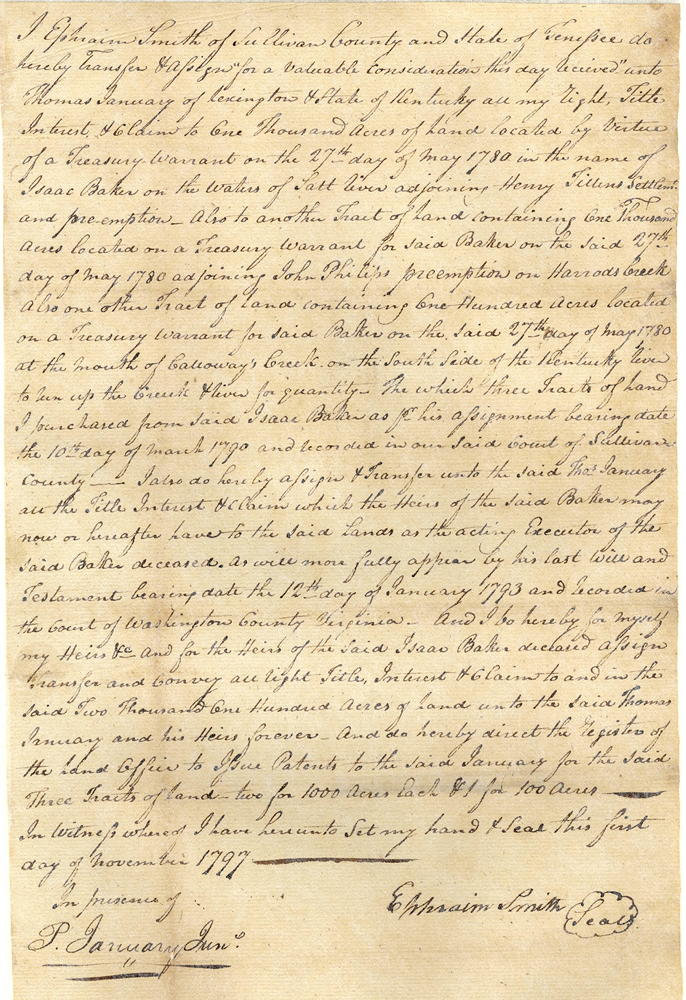 I Ephraim Smith of Sullivan County and State of Tenessee do
hereby Transfer & Assign "for a Valuable Consideration this day recieved" unto
Thomas January of Lexington & State of Kentucky all my right, Title
Interest, & Claim to One Thousand Acres of Land located by Virtue
of a Treasury Warrant on the 27th day of May 1780 in the name of
Isaac Baker on the Waters of Salt river adjoining Henry Tillens Settlemt
and preemption_ Also to another Tract of Land containing One Thousand
Acres located on a Treasury Warrant for said Baker on the said 27th
day of May 1780 adjoining John Philips preemption on Harrods Creek
Also one other Tract of Land containing One Hundred Acres located
on a Treasury Warrant for said Baker on the said 27th day of May 1780
at the Mouth of Calloway's Creek on the South Side of the Kentucky river
to run up the Creek & river for quantity_ The which three Tracts of Land
I purchased from said Isaac Baker as pr his assignment bearing date
the 10th day of March 1790 and recorded in our said Court of Sullivan
County___ I also do hereby assign & Transfer unto the said Thos January
all the Title Interest & Claim which the Heirs of the said Baker may
now or hereafter have to the said Lands as the acting Executor of the
said Baker deceased. As will more fully appear by his last Will and
Testament bearing date the 12th day of January 1793 and recorded in
the Court of Washington County Virginia_ And I do hereby for myself
my Heirs &c And for the Heirs of the said Isaac Baker deceased assign
Transfer and Convey all right Title, Interest & Claim to and in the
said Two Thousand One Hundred Acres of Land unto the said Thomas
January and his Heirs forever_ And do hereby direct the Register of
the Land Office to Issue Patents to the said January for the said
Three Tracts of Land_ two for 1000 Acres Each & 1 for 100 Acres
In Witness whereof I have hereunto Set my hand & Seal this first
day of November 1797
In presence of
Ephraim Smith Seal
P. January Junr